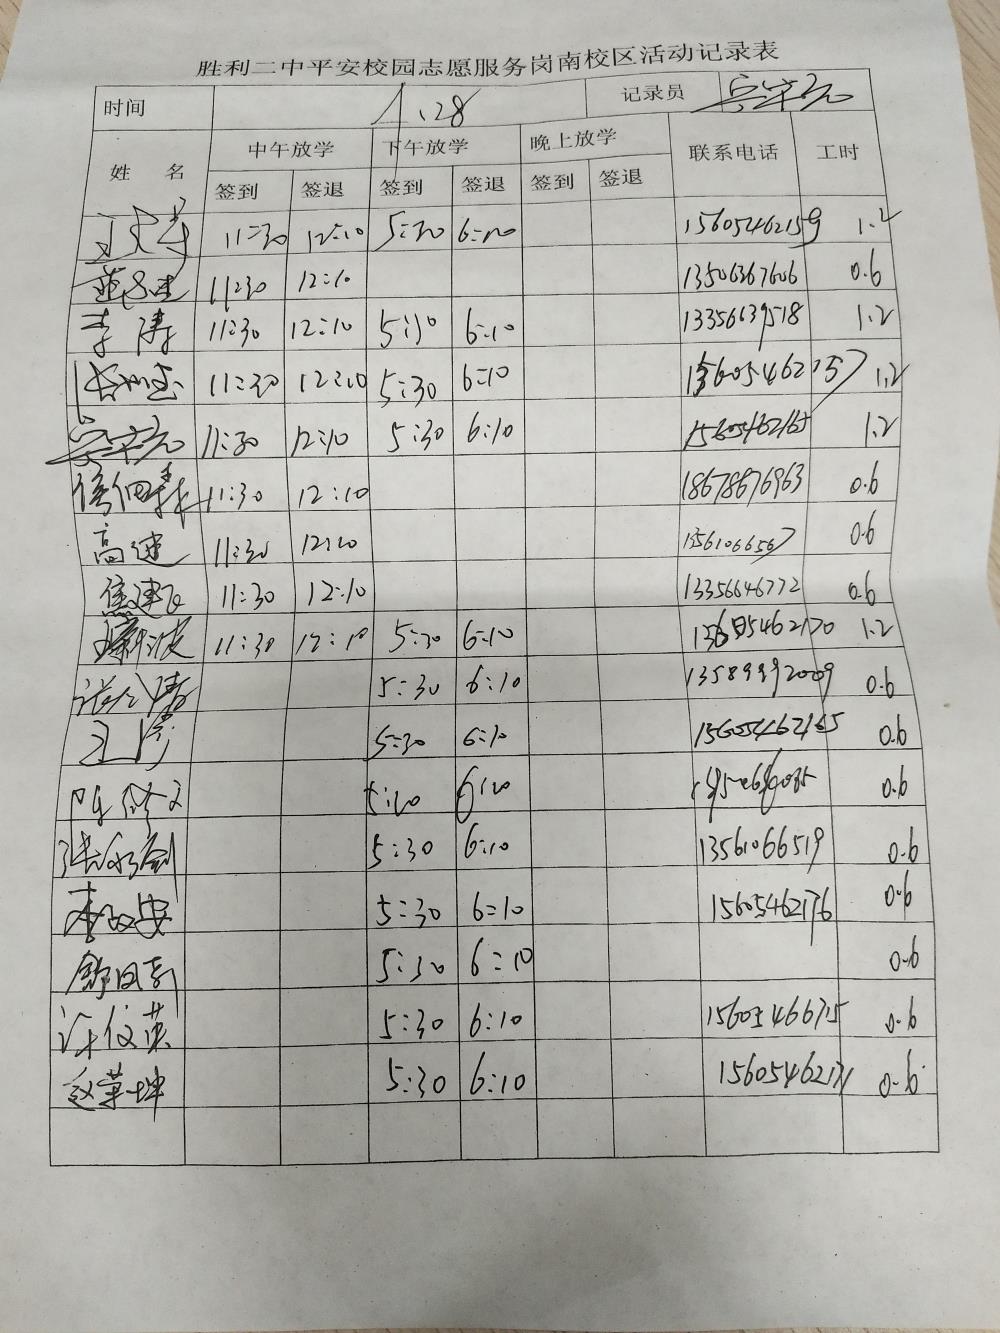 胜利二中平安校园志愿服务岗南校区活动记录表
时间 1.28 记录员
姓 名 中午放学 下午放学 晚上放学 联系电话 工时
签到 签退 签到 签退 签到 签退
11:30 12:10 5:30 6:10 15605462159 1.2
11:30 12:10 13506367606 0.6
李涛 11:30 12:10 5:30 6:10 13356639518 1.2
11:30 12:10 5:30 6:10 1.2
11:30 12:10 5:30 6:10 15605462165 1.2
11:30 12:10 18678676963 0.6
高建 11:30 12:10 13561066567 0.6
焦建飞 11:30 12:10 13356646772 0.6
11:30 12:10 5:30 6:10 1.2
5:30 6:10 13589992009 0.6
王涛 5:30 6:10 15605462165 0.6
6:10 0.6
张永剑 5:30 6:10 13561066519 0.6
李政安 5:30 6:10 15605462176 0.6
5:30 6:10 0.6
许俊英 5:30 6:10 15605466715 0.6
赵荣坤 5:30 6:10 15605462131 0.6